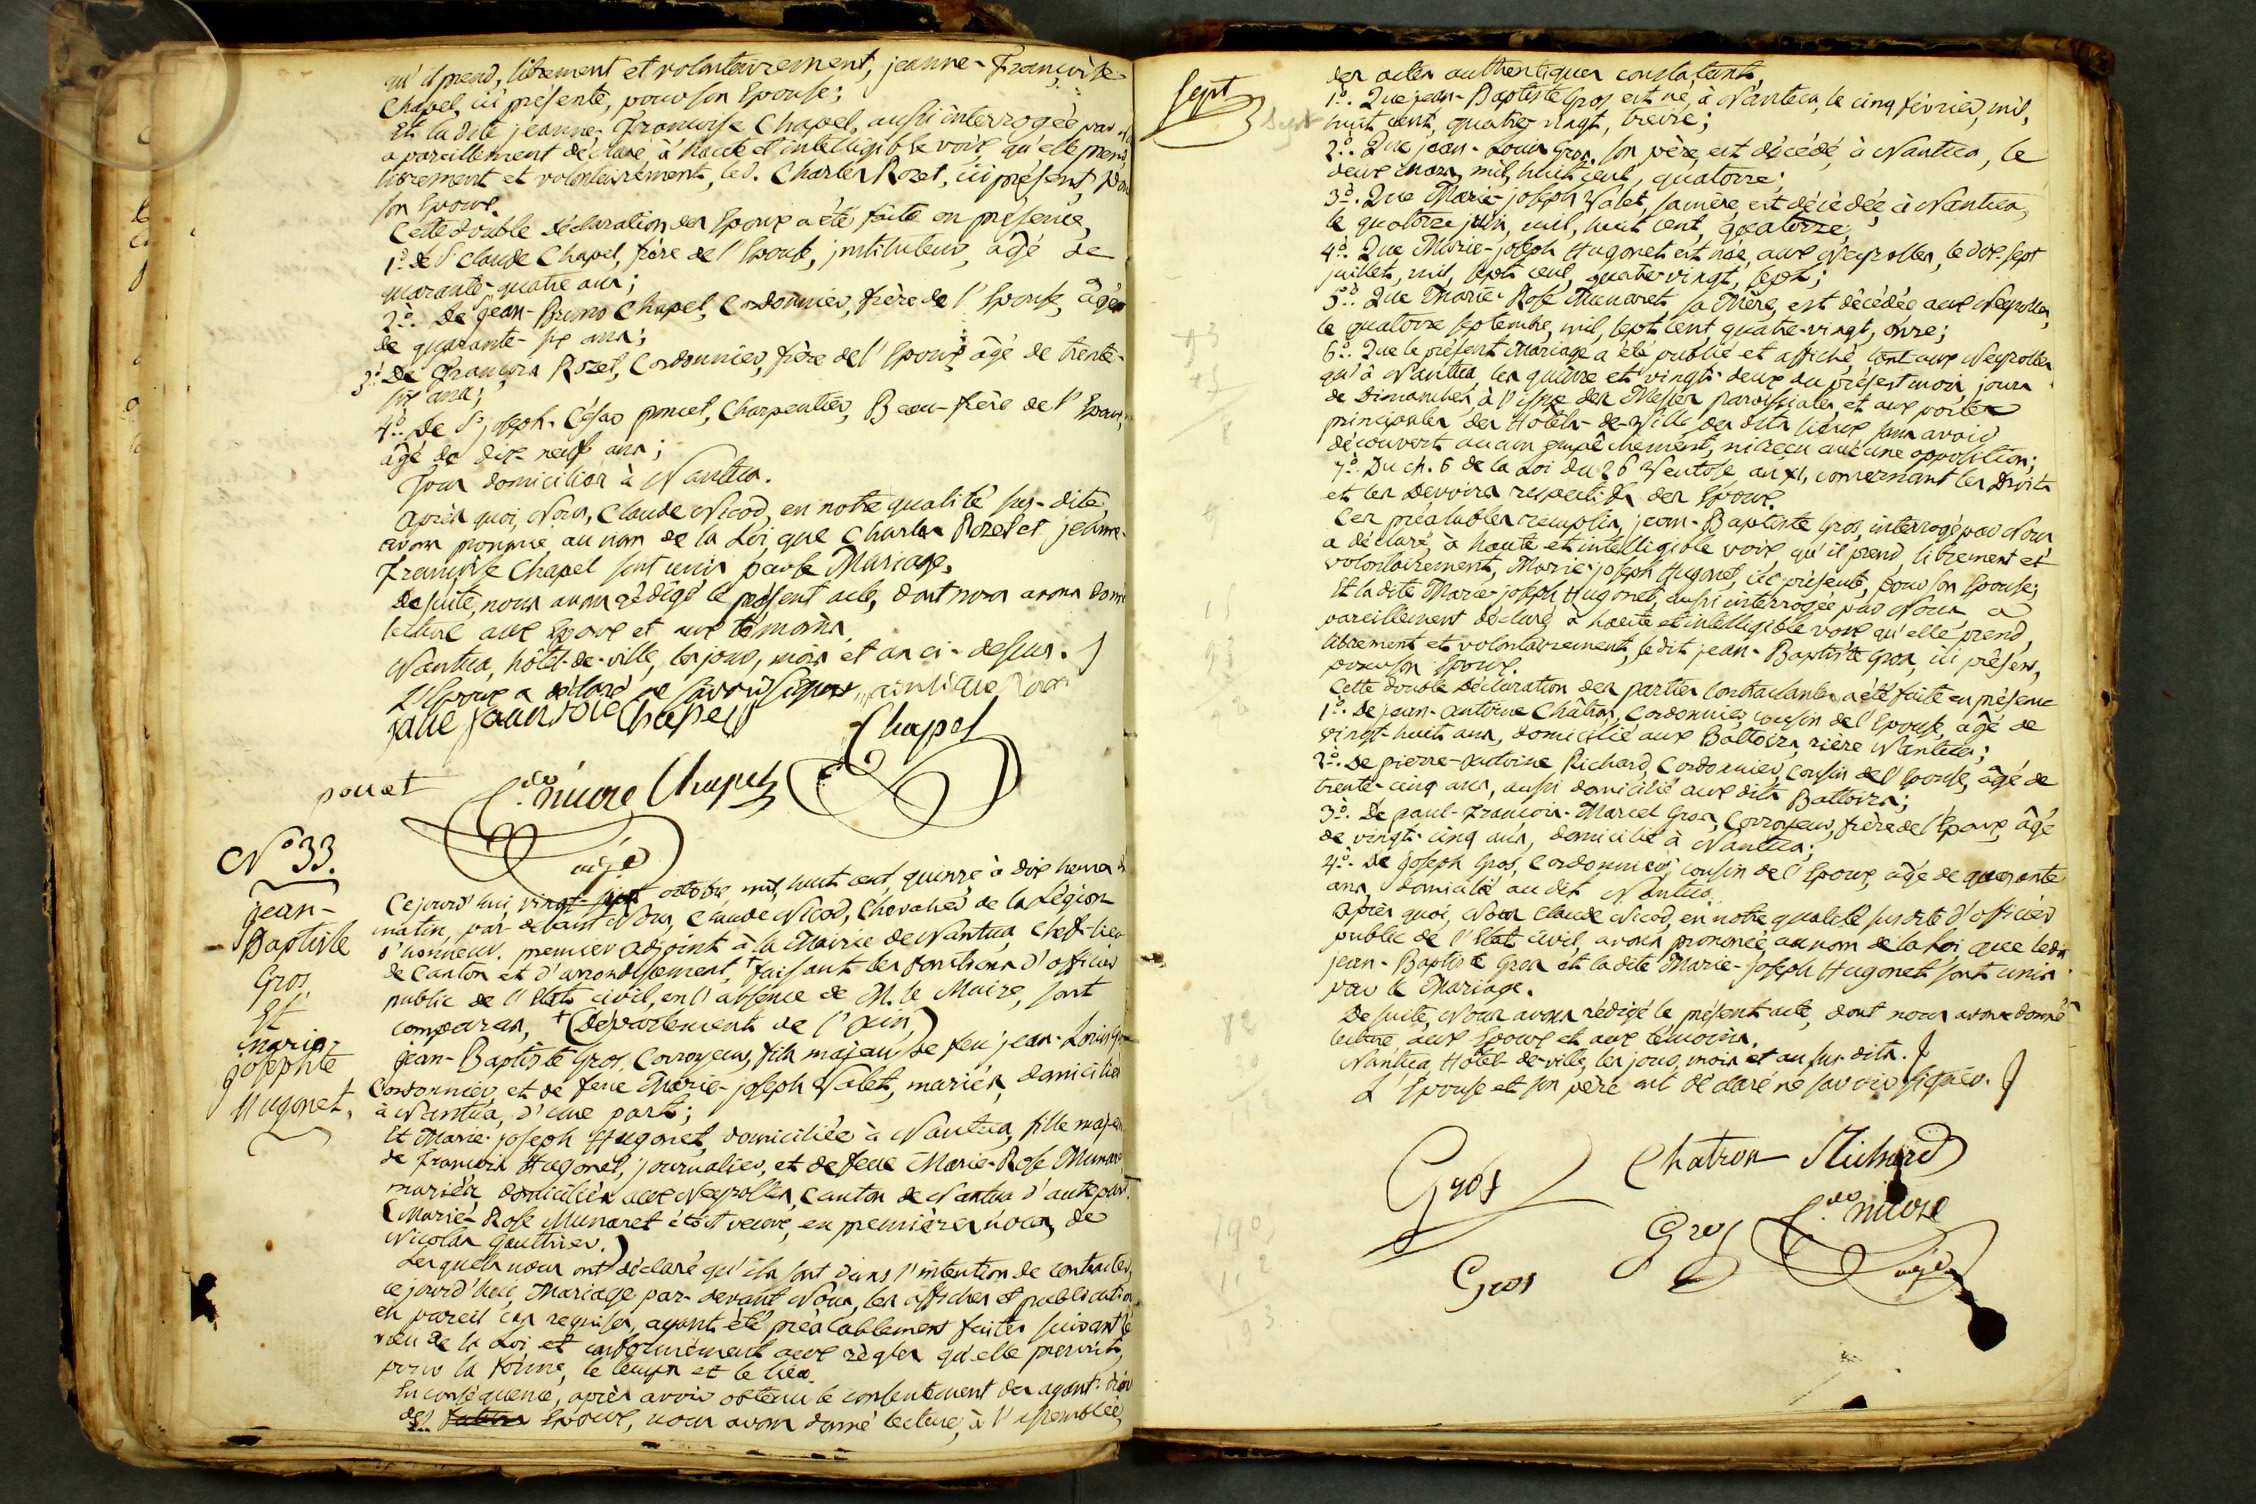 qu'il prend, librement et volontairement, jeanne-Françoise
Chapel, ici présente, pour son Epouse;
Et la dite jeanne-Françoise Chapel, aussi interrogée par
a pareillement déclaré, à haute et intelligible voix qu'elle prend
librement et volontairement, le d. Charles Rozet, ici présent, pour
son Epoux.
Cette double déclaration des Epoux a été faite en présence,
1.º de S.r Claude Chapel, frère de l'Epouse, instituteur, âgé de
quarante-quatre ans;
2.º De jean-Bruno Chapel, Cordonnier, frère de l'Epouse, âgé
de quarante-six ans;
3.º De François Rozet, Cordonnier, frère de l'Epoux âgé de trente-
six ans;
4.º De S.r joseph-César poncet, Charpentier, Beau-frère de l'Epoux,
âgé de dix-neuf ans;
Tous domiciliés à Nantua.
Après quoi, Nous, Claude Nicod, en notre qualité sus-dite,
avons prononcé, au nom de la Loi, que Charles Rozet et jeanne-
Françoise Chapel sont unis par le Mariage.
De suite, nous avons rédigé le présent acte, dont nous avons donné
lecture aux Epoux et aux témoins.
Nantua, hôtel-de-ville, les jour, mois et an ci-dessus.
L'Epoux a déclaré ne savoir signer,
Chapel
Chapel
poncet C.de nicod Chapel
adj.
N.º 33.
jean-
Baptiste
Gros
Et
marie-
josephte
Hugonet.
Cejourd'hui, vingt-sept octobre, mil, huit cent, quinze à dix heures
matin, par-devant Nous, Claude Nicod, Chevalier de la Légion
d'honneur, premier adjoint à la Mairie de Nantua, Chef-lieu
de Canton et d'arrondissement, + faisant les fonctions d'officier
public de l'Etat civil, en l'absence de M. le Maire, sont
comparus, + (Département de l'Ain,)
jean-Baptiste Gros, Corroyeur, fils majeur de feu jean-Louis Gros
Cordonnier, et de feue Marie-joseph Valet, mariés, domiciliés
à Nantua, d'une part;
Et Marie-joseph Hugonet, domiciliée à Nantua, fille majeure
de François Hugonet, journalier, et de feue Marie-Rose Munaret
mariés, domiciliés aux Neyrolles, Canton de Nantua d'autre part.
(Marie-Rose Munaret étoit veuve, en premières noces, de
Nicolas Gauthier.)
Lesquels nous ont déclaré qu'ils sont dans l'intention de contracter,
cejourd'hui, Mariage par-devant Nous, les affiches et publications
en pareil cas requises, ayant été préalablement faites suivant le
vœu de la Loi, et conformément aux règles qu'elle prescrit,
pour la forme, le temps et le lieu.
En conséquence, après avoir obtenu le consentement des ayant-droit
des futurs Epoux, nous avons donné lecture, à l'assemblée,
sept
Sept
des actes authentiques constatant,
1.º Que jean-Baptiste Gros est né, à Nantua, le cinq février, mil,
huit cent, quatre vingt, treize;
2.º Que jean-Louis Gros, son père est décédé, à Nantua, le
deux mars, mil, huit cent, quatorze;
3.º Que Marie-joseph Valet, sa mère, est décédée, à Nantua,
le quatorze juin, mil, huit cent, quatorze;
4.º Que Marie-joseph Hugonet est née, aux Neyrolles, le dix-sept
juillet, mil, sept cent, quatre vingt, sept;
5.º Que Marie-Rose Munaret sa Mère, est décédée aux Neyrolles,
le quatorze septembre, mil, sept cent quatre-vingt, onze;
6.º Que le présent Mariage a été publié et affiché, tant aux Neyrolles
qu'à Nantua, les quinze et vingt-deux du présent mois, jours
de Dimanches, à l'issue des Messes paroissiales, et aux portes
principales des Hôtels-de-Ville des dits lieux, sans avoir
découvert aucun empêchement, ni reçu aucune opposition;
7.º Du ch. 6 de la Loi du 26 Ventose, an XI, concernant les Droits
et les Devoirs respectifs des Epoux.
Ces préalables remplis, jean-Baptiste Gros, interrogé par Nous
a déclaré, à haute et intelligible voix, qu'il prend, librement et
volontairement, Marie-joseph Hugonet, ici présente, pour son Epouse;
Et la dite Marie-joseph Hugonet, aussi interrogée par Nous, a
pareillement déclaré, à haute et intelligible voix, qu'elle prend,
librement et volontairement, ledit jean-Baptiste Gros, ici présent,
pour son Epoux.
Cette double déclaration des parties contractantes a été faite en présence
1.º De jean-antoine Châtron, Cordonnier, cousin de l'Epouse, âgé de
vingt-huit ans, domicilié aux Battoirs, rière Nantua;
2.º De pierre-antoine Richard, Cordonnier, Cousin de l'Epouse, âgé de
trente-cinq ans, aussi domicilié aux dits Battoirs;
3.º De paul-François-Marcel Gros, Corroyeur, frère de l'Epoux, âgé
de vingt-cinq ans, domicilié à Nantua;
4.º De joseph Gros, Cordonnier, cousin de l'Epoux, âgé de quarante
ans, domicilié au dit Nantua.
Après quoi, Nous Claude Nicod, en notre qualité susdite d'officier
public de l'Etat civil, avons prononcé au nom de la Loi que ledit
jean-Baptiste Gros et la dite Marie-joseph Hugonet sont unis
par le Mariage.
De suite, Nous avons rédigé le présent acte, dont nous avons donné
lecture, aux Epoux et aux témoins.
Nantua, Hôtel-de-ville, les jour, mois et an sus-dits.
L'Epouse et son père ont déclaré ne savoir signer.
Gros Chatron Richard
Gros C.de nicod
Gros adj.